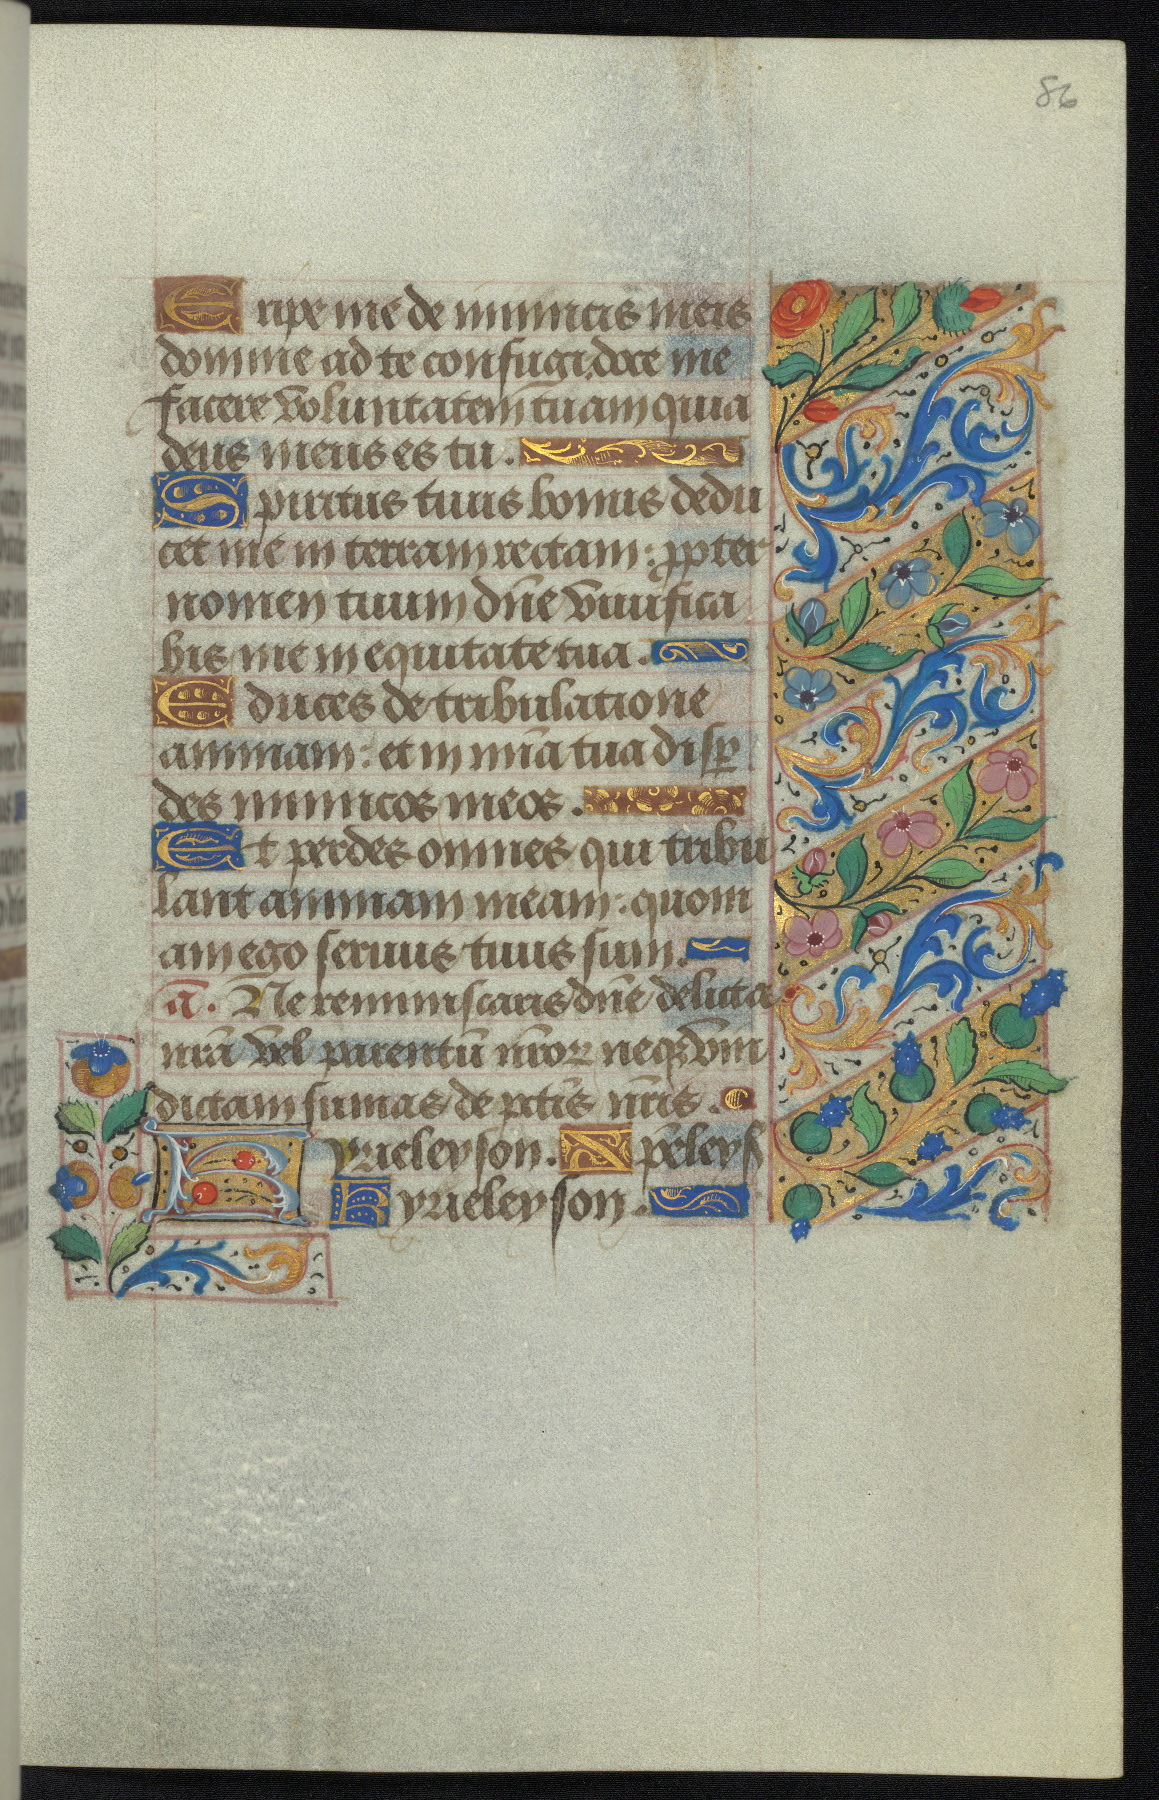 86
Eripe me de inimicis meis
domine ad te confugi. doce me
facere voluntatem tuam quia
deus meus es tu.
Spiritus tuus bonus dedu
cet me in terram rectam: ꝓpter
nomen tuum dñe vivifica
bis me in equitate tua.
Educes de tribulatione
animam: et in mīa tua dispͤ
des inimicos meos.
Et perdes omnes qui tribu
lant animam meam: quoni
am ego servus tuus sum.
a. Ne reminiscaris dñe delicta
nrā vel parentū nroꝝ neqꝫ vin
dictam sumas de pctis nris.
Kyrieleyson. Xpeleys
Kyrieleyson.